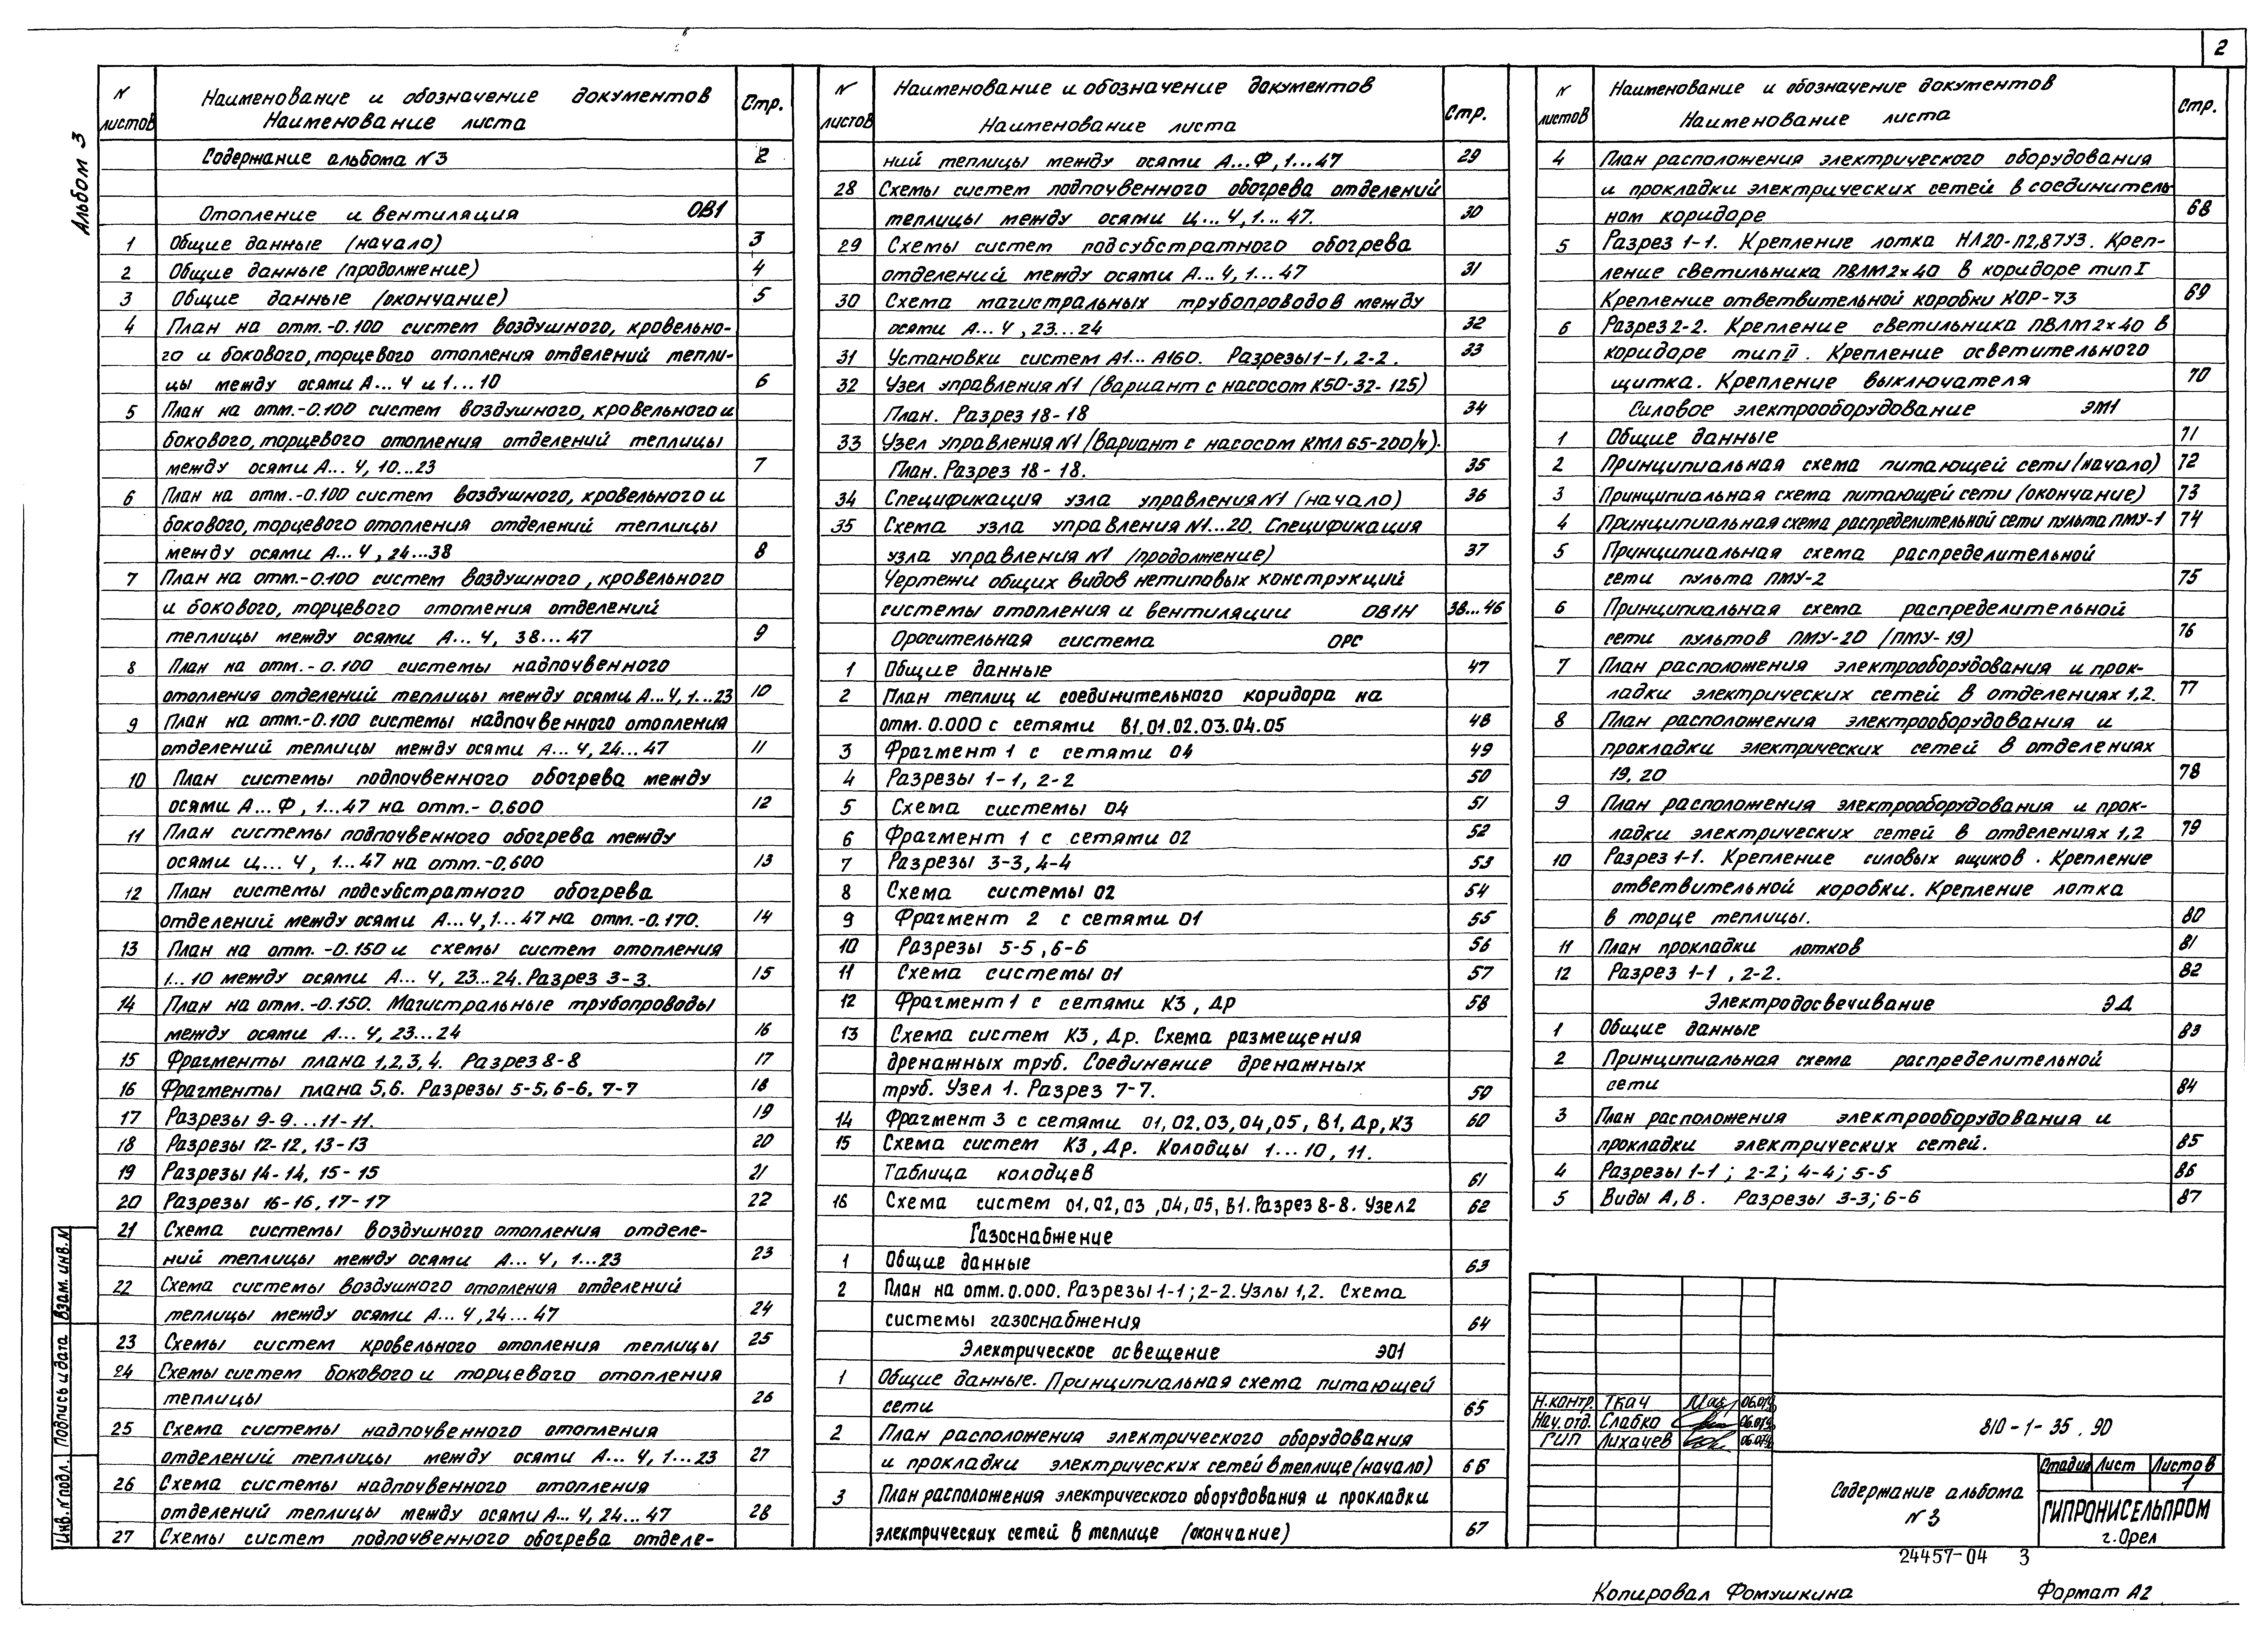 2
Альбом 3
N листов Наименование и обозначение документов Наименование листа Стр.
Содержание альбома N3 2
Отопление и вентиляция ОВ1
1 Общие данные (начало) 3
2 Общие данные (продолжение) 4
3 Общие данные (окончание) 5
4 План на отм.-0.100 систем воздушного, кровельно-
го и бокового, торцевого отопления отделений тепли-
цы между осями А...Ч и 1...10 6
5 План на отм.-0.100 систем воздушного, кровельного и
бокового, торцевого отопления отделений теплицы
между осями А...Ч, 10...23 7
6 План на отм.-0.100 систем воздушного, кровельного и
бокового, торцевого отопления отделений теплицы
между осями А...Ч, 24...38 8
7 План на отм.-0.100 систем воздушного, кровельного
и бокового, торцевого отопления отделений
теплицы между осями А...Ч, 38...47 9
8 План на отм.-0.100 системы надпочвенного
отопления отделений теплицы между осями А...Ч, 1...23 10
9 План на отм.-0.100 системы надпочвенного отопления
отделений теплицы между осями А...Ч, 24...47 11
10 План системы подпочвенного обогрева между
осями А...Ф, 1...47 на отм.-0.600 12
11 План системы подпочвенного обогрева между
осями Ц...Ч, 1...47 на отм.-0.600 13
12 План системы подсубстратного обогрева
отделений между осями А...Ч, 1...47 на отм.-0.170. 14
13 План на отм. -0.150 и схемы систем отопления
1...10 между осями А...Ч, 23...24. Разрез 3-3. 15
14 План на отм. -0.150. Магистральные трубопроводы
между осями А...Ч, 23...24 16
15 Фрагменты плана 1,2,3,4. Разрез 8-8 17
16 Фрагменты плана 5,6. Разрезы 5-5, 6-6, 7-7 18
17 Разрезы 9-9...11-11. 19
18 Разрезы 12-12, 13-13 20
19 Разрезы 14-14, 15-15 21
20 Разрезы 16-16, 17-17 22
21 Схема системы воздушного отопления отделе-
ний теплицы между осями А...Ч, 1...23 23
22 Схема системы воздушного отопления отделений
теплицы между осями А...Ч, 24...47 24
23 Схемы систем кровельного отопления теплицы 25
24 Схемы систем бокового и торцевого отопления
теплицы 26
25 Схема системы надпочвенного отопления
отделений теплицы между осями А...Ч, 1...23 27
26 Схема системы надпочвенного отопления
отделений теплицы между осями А...Ч, 24...47 28
27 Схемы систем подпочвенного обогрева отделе-
N листов Наименование и обозначение документов Наименование листа Стр.
ний теплицы между осями А...Ф, 1...47 29
28 Схемы систем подпочвенного обогрева отделений
теплицы между осями Ц...Ч, 1...47. 30
29 Схемы систем подсубстратного обогрева
отделений между осями А...Ч, 1...47 31
30 Схема магистральных трубопроводов между
осями А...Ч, 23...24 32
31 Установки систем А1...А160. Разрезы 1-1, 2-2. 33
32 Узел управления N1 (вариант с насосом К50-32-125)
План. Разрез 18-18 34
33 Узел управления N1 (Вариант с насосом КМЛ 65-200/4).
План. Разрез 18-18. 35
34 Спецификация узла управления N1 (начало) 36
35 Схема узла управления N1...20. Спецификация
узла управления N1 (продолжение) 37
Чертежи общих видов нетиповых конструкций
системы отопления и вентиляции ОВ1Н 38...46
Оросительная система ОРС
1 Общие данные 47
2 План теплиц и соединительного коридора на
отм. 0.000 с сетями В1.01.02.03.04.05 48
3 Фрагмент 1 с сетями 04 49
4 Разрезы 1-1, 2-2 50
5 Схема системы 04 51
6 Фрагмент 1 с сетями 02 52
7 Разрезы 3-3, 4-4 53
8 Схема системы 02 54
9 Фрагмент 2 с сетями 01 55
10 Разрезы 5-5, 6-6 56
11 Схема системы 01 57
12 Фрагмент 1 с сетями К3, Др 58
13 Схема систем К3, Др. Схема размещения
дренажных труб. Соединение дренажных
труб. Узел 1. Разрез 7-7. 59
14 Фрагмент 3 с сетями 01, 02, 03, 04, 05, В1, Др, К3 60
15 Схема систем К3, Др. Колодцы 1...10, 11.
Таблица колодцев 61
16 Схема систем 01, 02, 03, 04, 05, В1. Разрез 8-8. Узел 2 62
Газоснабжение
1 Общие данные 63
2 План на отм. 0.000. Разрезы 1-1; 2-2. Узлы 1,2. Схема
системы газоснабжения 64
Электрическое освещение ЭО1
1 Общие данные. Принципиальная схема питающей
сети 65
2 План расположения электрического оборудования
и прокладки электрических сетей в теплице (начало) 66
3 План расположения электрического оборудования и прокладки
электрических сетей в теплице (окончание) 67
N листов Наименование и обозначение документов Наименование листа Стр.
4 План расположения электрического оборудования
и прокладки электрических сетей в соединитель
ном коридоре 68
5 Разрез 1-1. Крепление лотка НЛ20-П2,87У3. Креп-
ление светильника ПВЛМ 2×40 в коридоре тип I
Крепление ответвительной коробки КОР-73 69
6 Разрез 2-2. Крепление светильника ПВЛМ 2×40 в
коридоре тип II. Крепление осветительного
щитка. Крепление выключателя 70
Силовое электрооборудование ЭМ1
1 Общие данные 71
2 Принципиальная схема питающей сети (начало) 72
3 Принципиальная схема питающей сети (окончание) 73
4 Принципиальная схема распределительной сети пульта ПМУ-1 74
5 Принципиальная схема распределительной
сети пульта ПМУ-2 75
6 Принципиальная схема распределительной
сети пультов ПМУ-20 (ПМУ-19) 76
7 План расположения электрооборудования и прок-
ладки электрических сетей в отделениях 1,2. 77
8 План расположения электрооборудования и
прокладки электрических сетей в отделениях
19, 20 78
9 План расположения электрооборудования и прок-
ладки электрических сетей в отделениях 1,2 79
10 Разрез 1-1. Крепление силовых ящиков. Крепление
ответвительной коробки. Крепление лотка
в торце теплицы. 80
11 План прокладки лотков 81
12 Разрез 1-1, 2-2. 82
Электродосвечивание ЭД
1 Общие данные 83
2 Принципиальная схема распределительной
сети 84
3 План расположения электрооборудования и
прокладки электрических сетей. 85
4 Разрезы 1-1; 2-2; 4-4; 5-5 86
5 Виды А, В. Разрезы 3-3; 6-6 87
Взам. инв. N
Подпись и дата
Инв. N подл.
Н.контр. Ткач
Нач.отд. Слабко
ГИП Лихачев
810-1-35.90
Содержание альбома
N3
Стадия Лист Листов
1
ГИПРОНИСЕЛЬПРОМ
г. Орел
24457-04 3
Копировал Фомушкина Формат А2